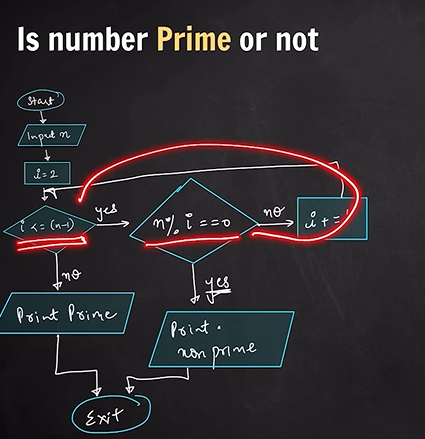 Is number Prime or not
Start
Input n
i=2
i <= (n-1)
yes
n% i ==0
no
i + =
no
yes
Print Prime
Print.
non prime
Exit